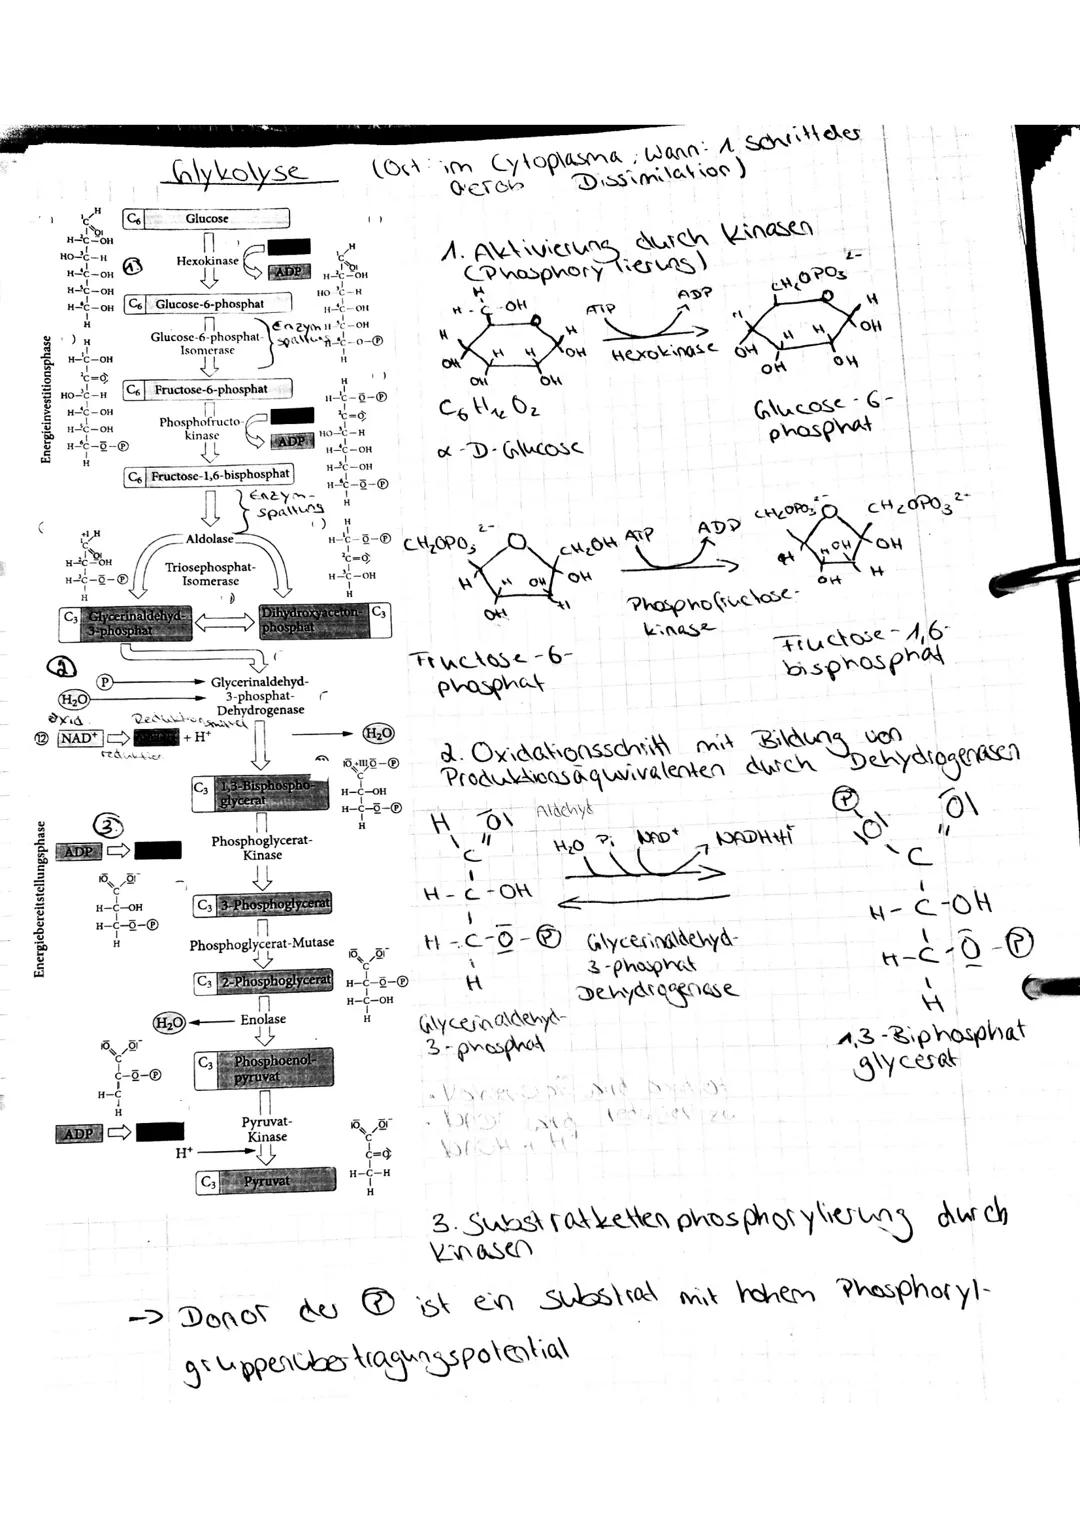 Glykolyse (Ort: im Cytoplasma, Wann: 1. Schritt der
aerob Dissimilation)
Energieinvestitionsphase
C6 Glucose
1.
Hexokinase
ADP
C6 Glucose-6-phosphat
Glucose-6-phosphat-
Isomerase
Enzym
spaltung
C6 Fructose-6-phosphat
Phosphofructo-
kinase
ADP
C6 Fructose-1,6-bisphosphat
Enzym-
spaltung
Aldolase
Triosephosphat-
Isomerase
C3 Glycerinaldehyd-
3-phosphat
Dihydroxyaceton-
phosphat C3
2
P
H2O
Glycerinaldehyd-
3-phosphat-
Dehydrogenase
Oxid.
Reduktionsmittel
12 NAD+ + H+
H2O
Energiebereitstellungsphase
C3 1,3-Bisphospho-
glycerat
3.
ADP
Phosphoglycerat-
Kinase
C3 3-Phosphoglycerat
Phosphoglycerat-Mutase
C3 2-Phosphoglycerat
H2O
Enolase
C3 Phosphoenol-
pyruvat
ADP
Pyruvat-
Kinase
H+
C3 Pyruvat
1. Aktivierung durch Kinasen
(Phosphorylierung)
ATP ADP
Hexokinase
CH2OPO3 2-
C6H12O2
α-D-Glucose
Glucose-6-
phosphat
CH2OPO3 2- CH2OH ATP ADD CH2OPO3 2- CH2OPO3 2-
Phosphofructose-
kinase
Fructose-6-
phosphat
Fructose-1,6-
bisphosphat
2. Oxidationsschritt mit Bildung von
Produktionsäquivalenten durch Dehydrogenasen
Aldehyd
H2O Pi NAD+ NADH+H+
H-C-OH
H-C-O-P
H
Glycerinaldehyd-
3-phosphat
Dehydrogenase
H-C-OH
H-C-O-P
H
Glycerinaldehyd-
3-phosphat
1,3-Biphosphat
glycerat
3. Substratkettenphosphorylierung durch
Kinasen
-> Donor der P ist ein Substrat mit hohem Phosphoryl-
gruppenübertragungspotential